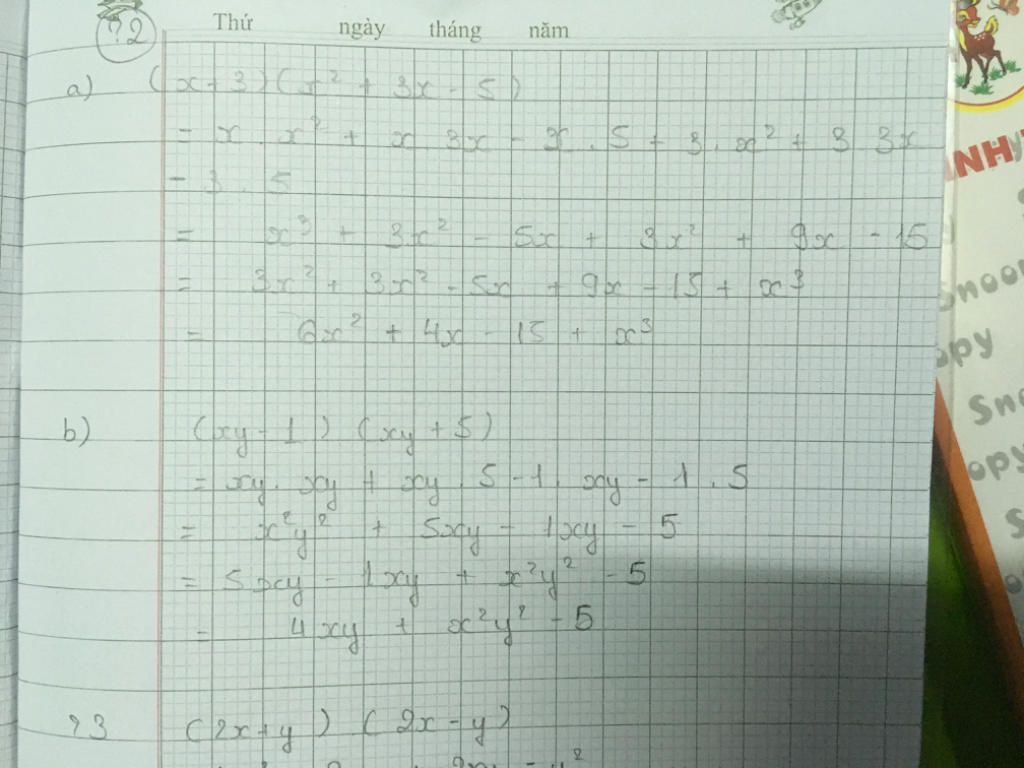 Thứ ngày tháng năm
?2
a) (x+3)(x² + 3x - 5)
= x . x² + x 3x - x . 5 + 3 . x² + 3 3x
- 3 . 5
= x³ + 3x² - 5x + 3x² + 9x - 15
= 3x² + 3x² - 5x + 9x - 15 + x³
= 6x² + 4x - 15 + x³
b) (xy - 1) (xy + 5)
= xy . xy + xy . 5 - 1 . xy - 1 . 5
= x²y² + 5xy - 1xy - 5
= 5xy - 1xy + x²y² - 5
= 4xy + x²y² - 5
?3 (2x+y) (2x-y)
ANH
Snoo
opy
Sno
opy
S